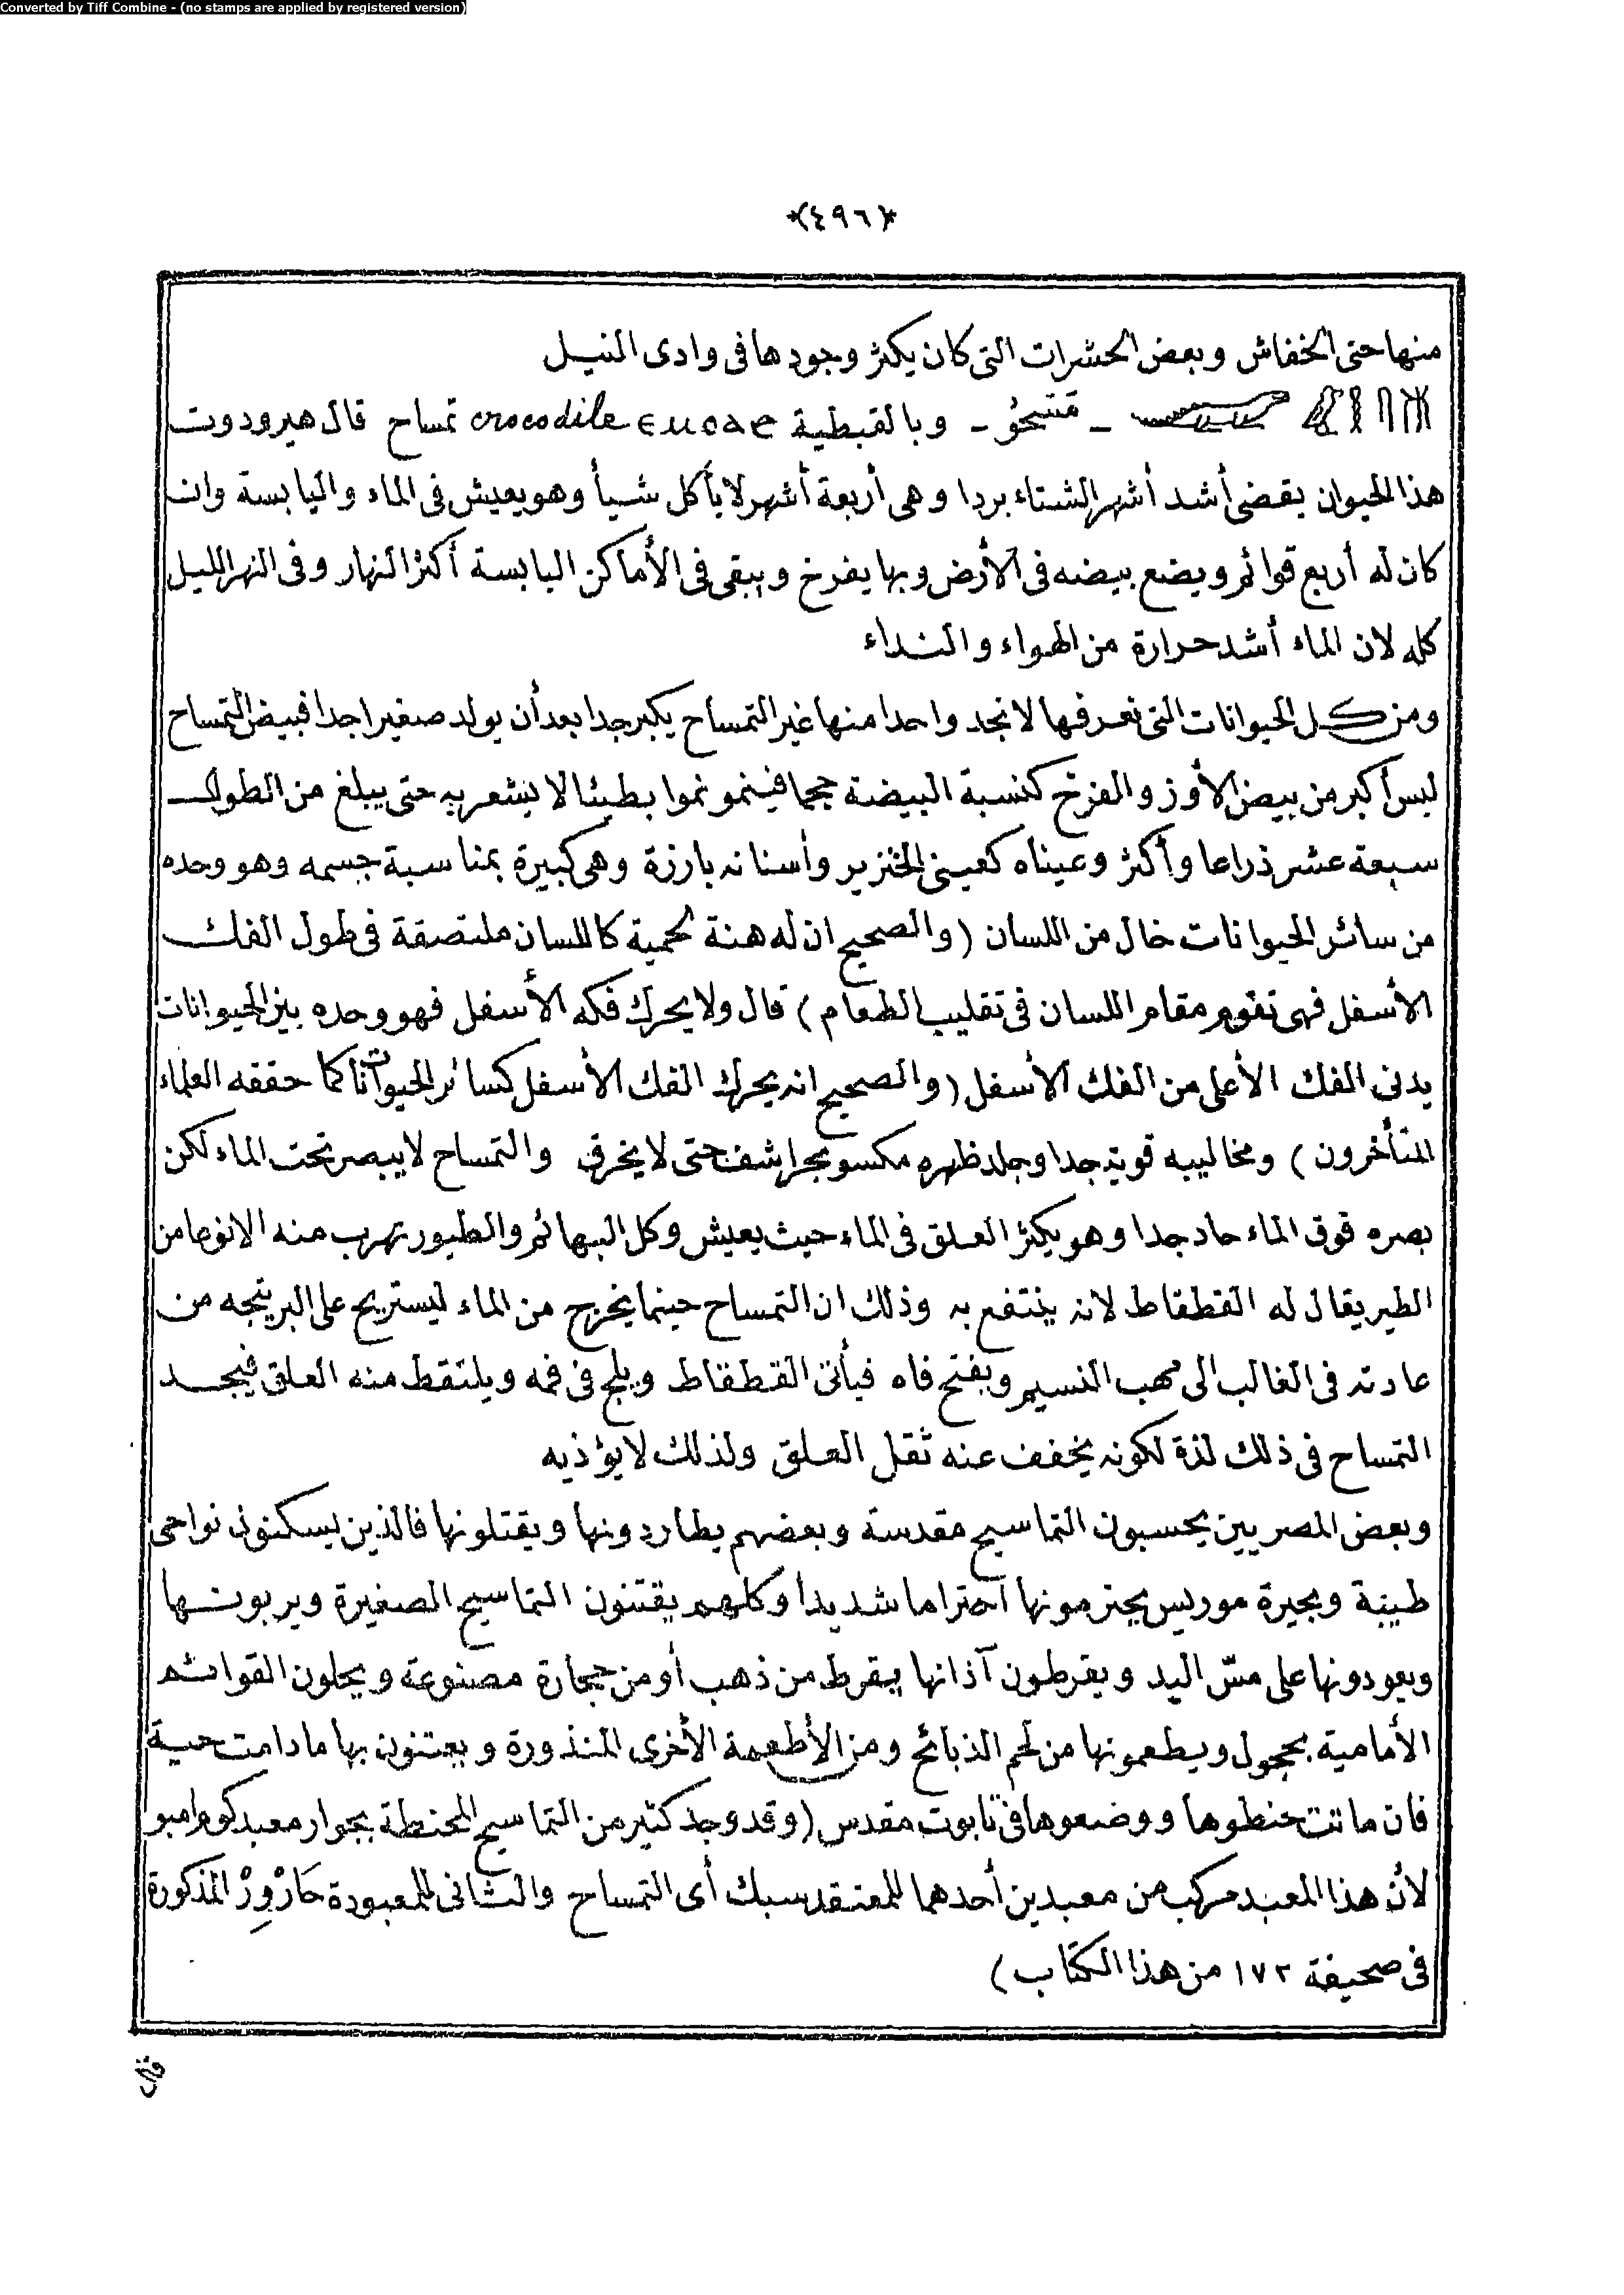 Converted by Tiff Combine - (no stamps are applied by registered version)
﴿٤٩٦﴾
منها حتى الخفاش وبعض الحشرات التى كان يكثر وجودها فى وادى النيل
وبالقبطية crocodile تمساح قال هيرودوت
هذا الحيوان يقضى أشد أشهر الشتاء بردا وهى أربعة أشهر لا يأكل شيأ وهو يعيش فى الماء واليابسة وان
كان له أربع قوائم ويضع بيضه فى الأرض وبها يفرخ ويبقى فى الأماكن اليابسة أكثر النهار وفى النهر الليل
كله لان الماء أشد حرارة من الهواء والنداء
ومن كل الحيوانات التى نعرفها لا نجد واحدا منها غير التمساح يكبر جدا بعد أن يولد صغيرا جدا فبيض التمساح
ليس أكبر من بيض الأوز والفرخ كنسبة البيضة حجما فينمو نموا بطيئا لا يشعر به حتى يبلغ من الطول
سبعة عشر ذراعا وأكثر وعيناه كعينى الخنزير وأسنانه بارزة وهى كبيرة بمناسبة جسمه وهو وحده
من سائر الحيوانات خال من اللسان (والصحيح ان له هنة لحمية كاللسان ملتصقة فى طول الفك
الأسفل فهى تقوم مقام اللسان فى تقليب الطعام) قال ولا يحرك فكه الأسفل فهو وحده بين الحيوانات
يدنى الفك الأعلى من الفك الأسفل (والصحيح انه يحرك الفك الأسفل كسائر الحيوانات كما حققه العلماء
المتأخرون) ومخاليبه قوية جدا وجلد ظهره مكسو بحراشف حتى لا يخرق والتمساح لا يبصر تحت الماء لكن
بصره فوق الماء حاد جدا وهو يكثر العلق فى الماء حيث يعيش وكل البهائم والطيور تهرب منه الا نوعا من
الطير يقال له القطقاط لانه ينتفع به وذلك ان التمساح حينما يخرج من الماء ليستريح على البر يتجه من
عادته فى الغالب الى مهب النسيم ويفتح فاه فيأتى القطقاط ويلج فى فمه ويلتقط منه العلق فيجد
التمساح فى ذلك لذة لكونه يخفف عنه ثقل العلق ولذلك لا يؤذيه
وبعض المصريين يحسبون التماسيح مقدسة وبعضهم يطاردونها ويقتلونها فالذين يسكنون نواحى
طيبة وبحيرة موريس يحترمونها احتراما شديدا وكلهم يقتنون التماسيح الصغيرة ويربونها
ويعودونها على مسّ اليد ويقرطون آذانها بقرط من ذهب أو من حجارة مصنوعة ويحلون القوائم
الأمامية بحجول ويطعمونها من لحم الذبائح ومن الأطعمة الأخرى المنذورة ويعتنون بها ما دامت حية
فان ماتت حنطوها ووضعوها فى تابوت مقدس (وقد وجد كثير من التماسيح المحنطة بجوار معبد كوم امبو
لأن هذا المعبد مركب من معبدين أحدهما للمعتقد سبك أى التمساح والثانى للمعبودة حَارْوِرْ المذكورة
فى صحيفة ١٧٢ من هذا الكتاب)
قال